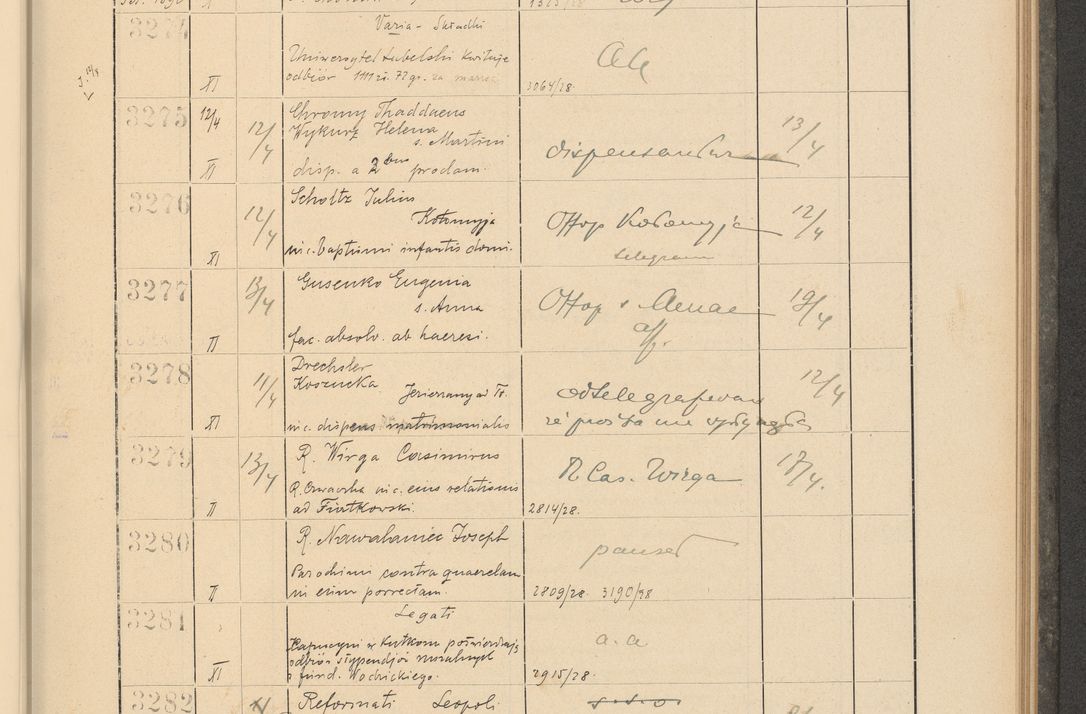 3274
Varia - Składki
Uniwersytet Lubelski kwituje
odbiór 1111 zł. 72 gr. za
XI
3064/28.
aa
3275
12/4
12/4
Chromy Thaddaeus
Wykurz Helena
s. Martini
XI
disp. a 2bus proclam.
13/4
3276
12/4
Scholtz Julius
Kołomyja
nic. baptismi infantis domi.
XI
Offop Kołomyja
telegram
12/4
3277
13/4
Gusenko Eugenia
s. Anna
fac. absolv. ab haeresi.
II
Offop s Annae
19/4
3278
11/4
Drechsler
Koszucka
Jezierzany ad Tł.
nic. dispens matrimonialis
XI
odtelegrafowano
że prośba nie
12/4
3279
13/4
R. Wirga Casimirus
nic. eius relationis
ad Fiatkowski.
II
2814/28.
R Cas. Wirga
17/4.
3280
R. Nawalaniec Joseph
Parochiani contra quaerelam
in eum porrectam.
II
2809/28. 3190/28
3281
Legati
Kapucyni w Kutkorz poświadczają
odbiór stypendjów mszalnych
z fund. Wodzickiego.
XI
2915/28.
a.a
3282
Reformati Leopoli